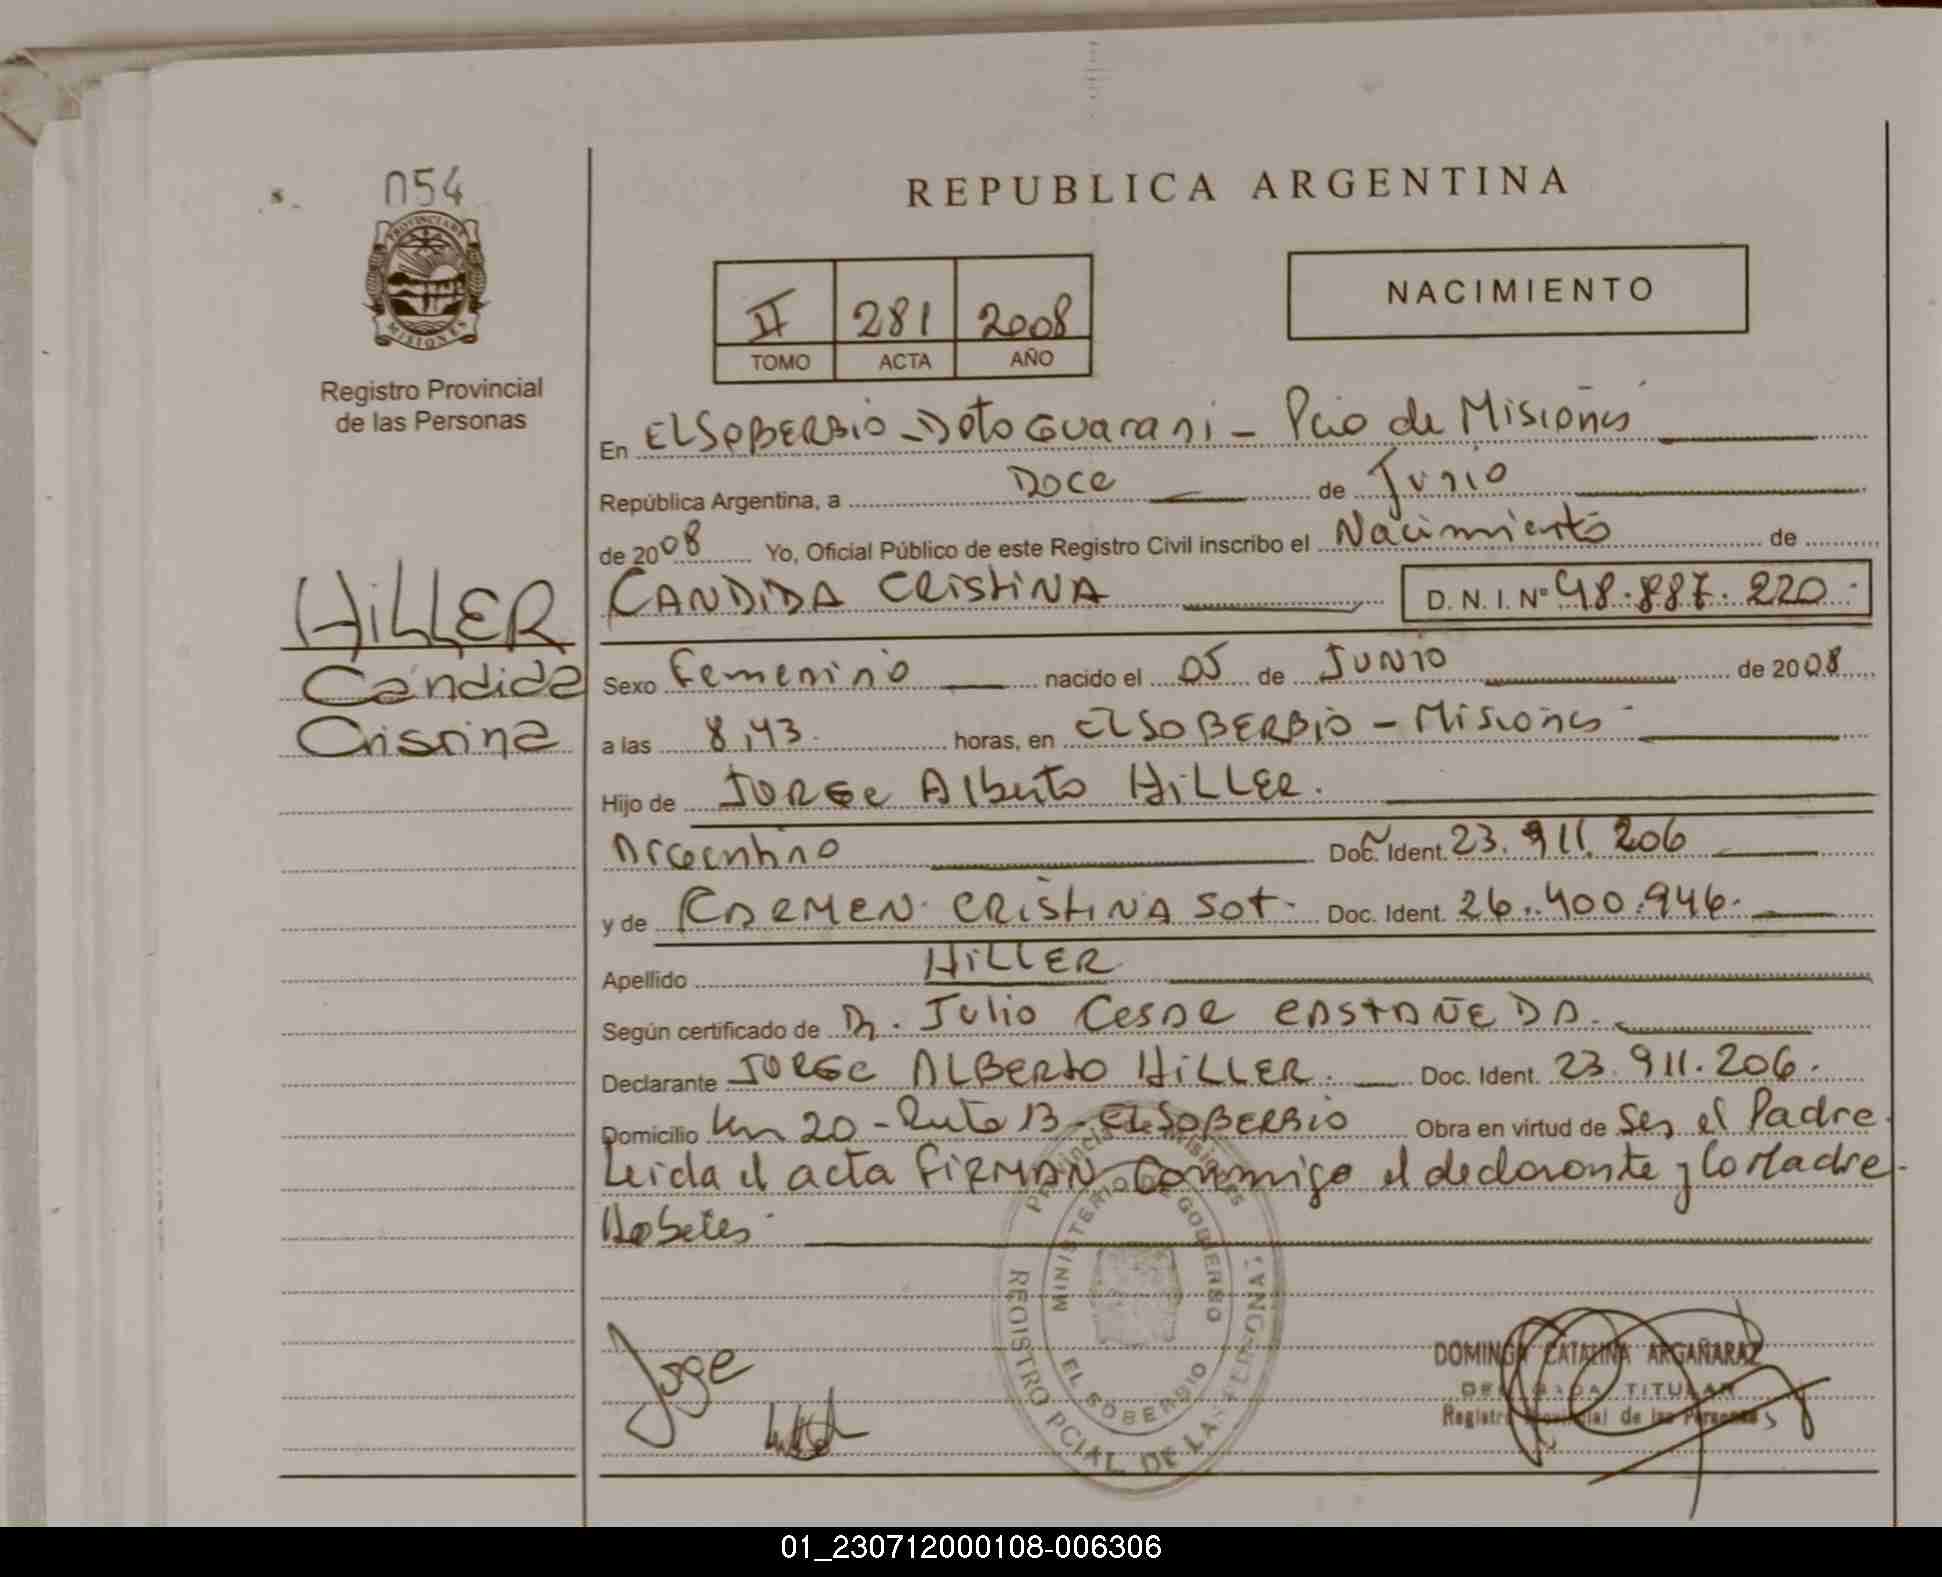 054
PROVINCIA DE
MISIONES
Registro Provincial
de las Personas
HiLLER
Cándida
Cristina
REPUBLICA ARGENTINA
II 281 2008
TOMO ACTA AÑO
NACIMIENTO
En EL SOBERBIO - Dpto Guarani - Pcia de Misiones
República Argentina, a Doce de Junio
de 2008 Yo, Oficial Público de este Registro Civil inscribo el Nacimiento de
CANDIDA CRISTINA D.N.I. Nº 48.887.220
Sexo Femenino nacido el 05 de JUNIO de 2008
a las 8,43 horas, en EL SOBERBIO - Misiones
Hijo de JORGE Alberto HiLLER.
Argentino Doc. Ident. 23.911.206
y de CARMEN CRISTINA SOT Doc. Ident. 26.400.946.
Apellido HiLLER
Según certificado de Dr. Julio Cesar CASTAÑEDA.
Declarante JORGE ALBERTO HiLLER. Doc. Ident. 23.911.206.
Domicilio Km 20 - Ruta 13 - EL SOBERBIO Obra en virtud de Ser el Padre.
Leida el acta FIRMAN Conmigo el declarante y la Madre.
Jorge
Provincia de Misiones
MINISTERIO DE GOBIERNO
EL SOBERBIO
REGISTRO PCIAL. DE LAS PERSONAS
DOMINGA CATALINA ARGAÑARAZ
DELEGADA TITULAR
Registro Provincial de las Personas
01_230712000108-006306